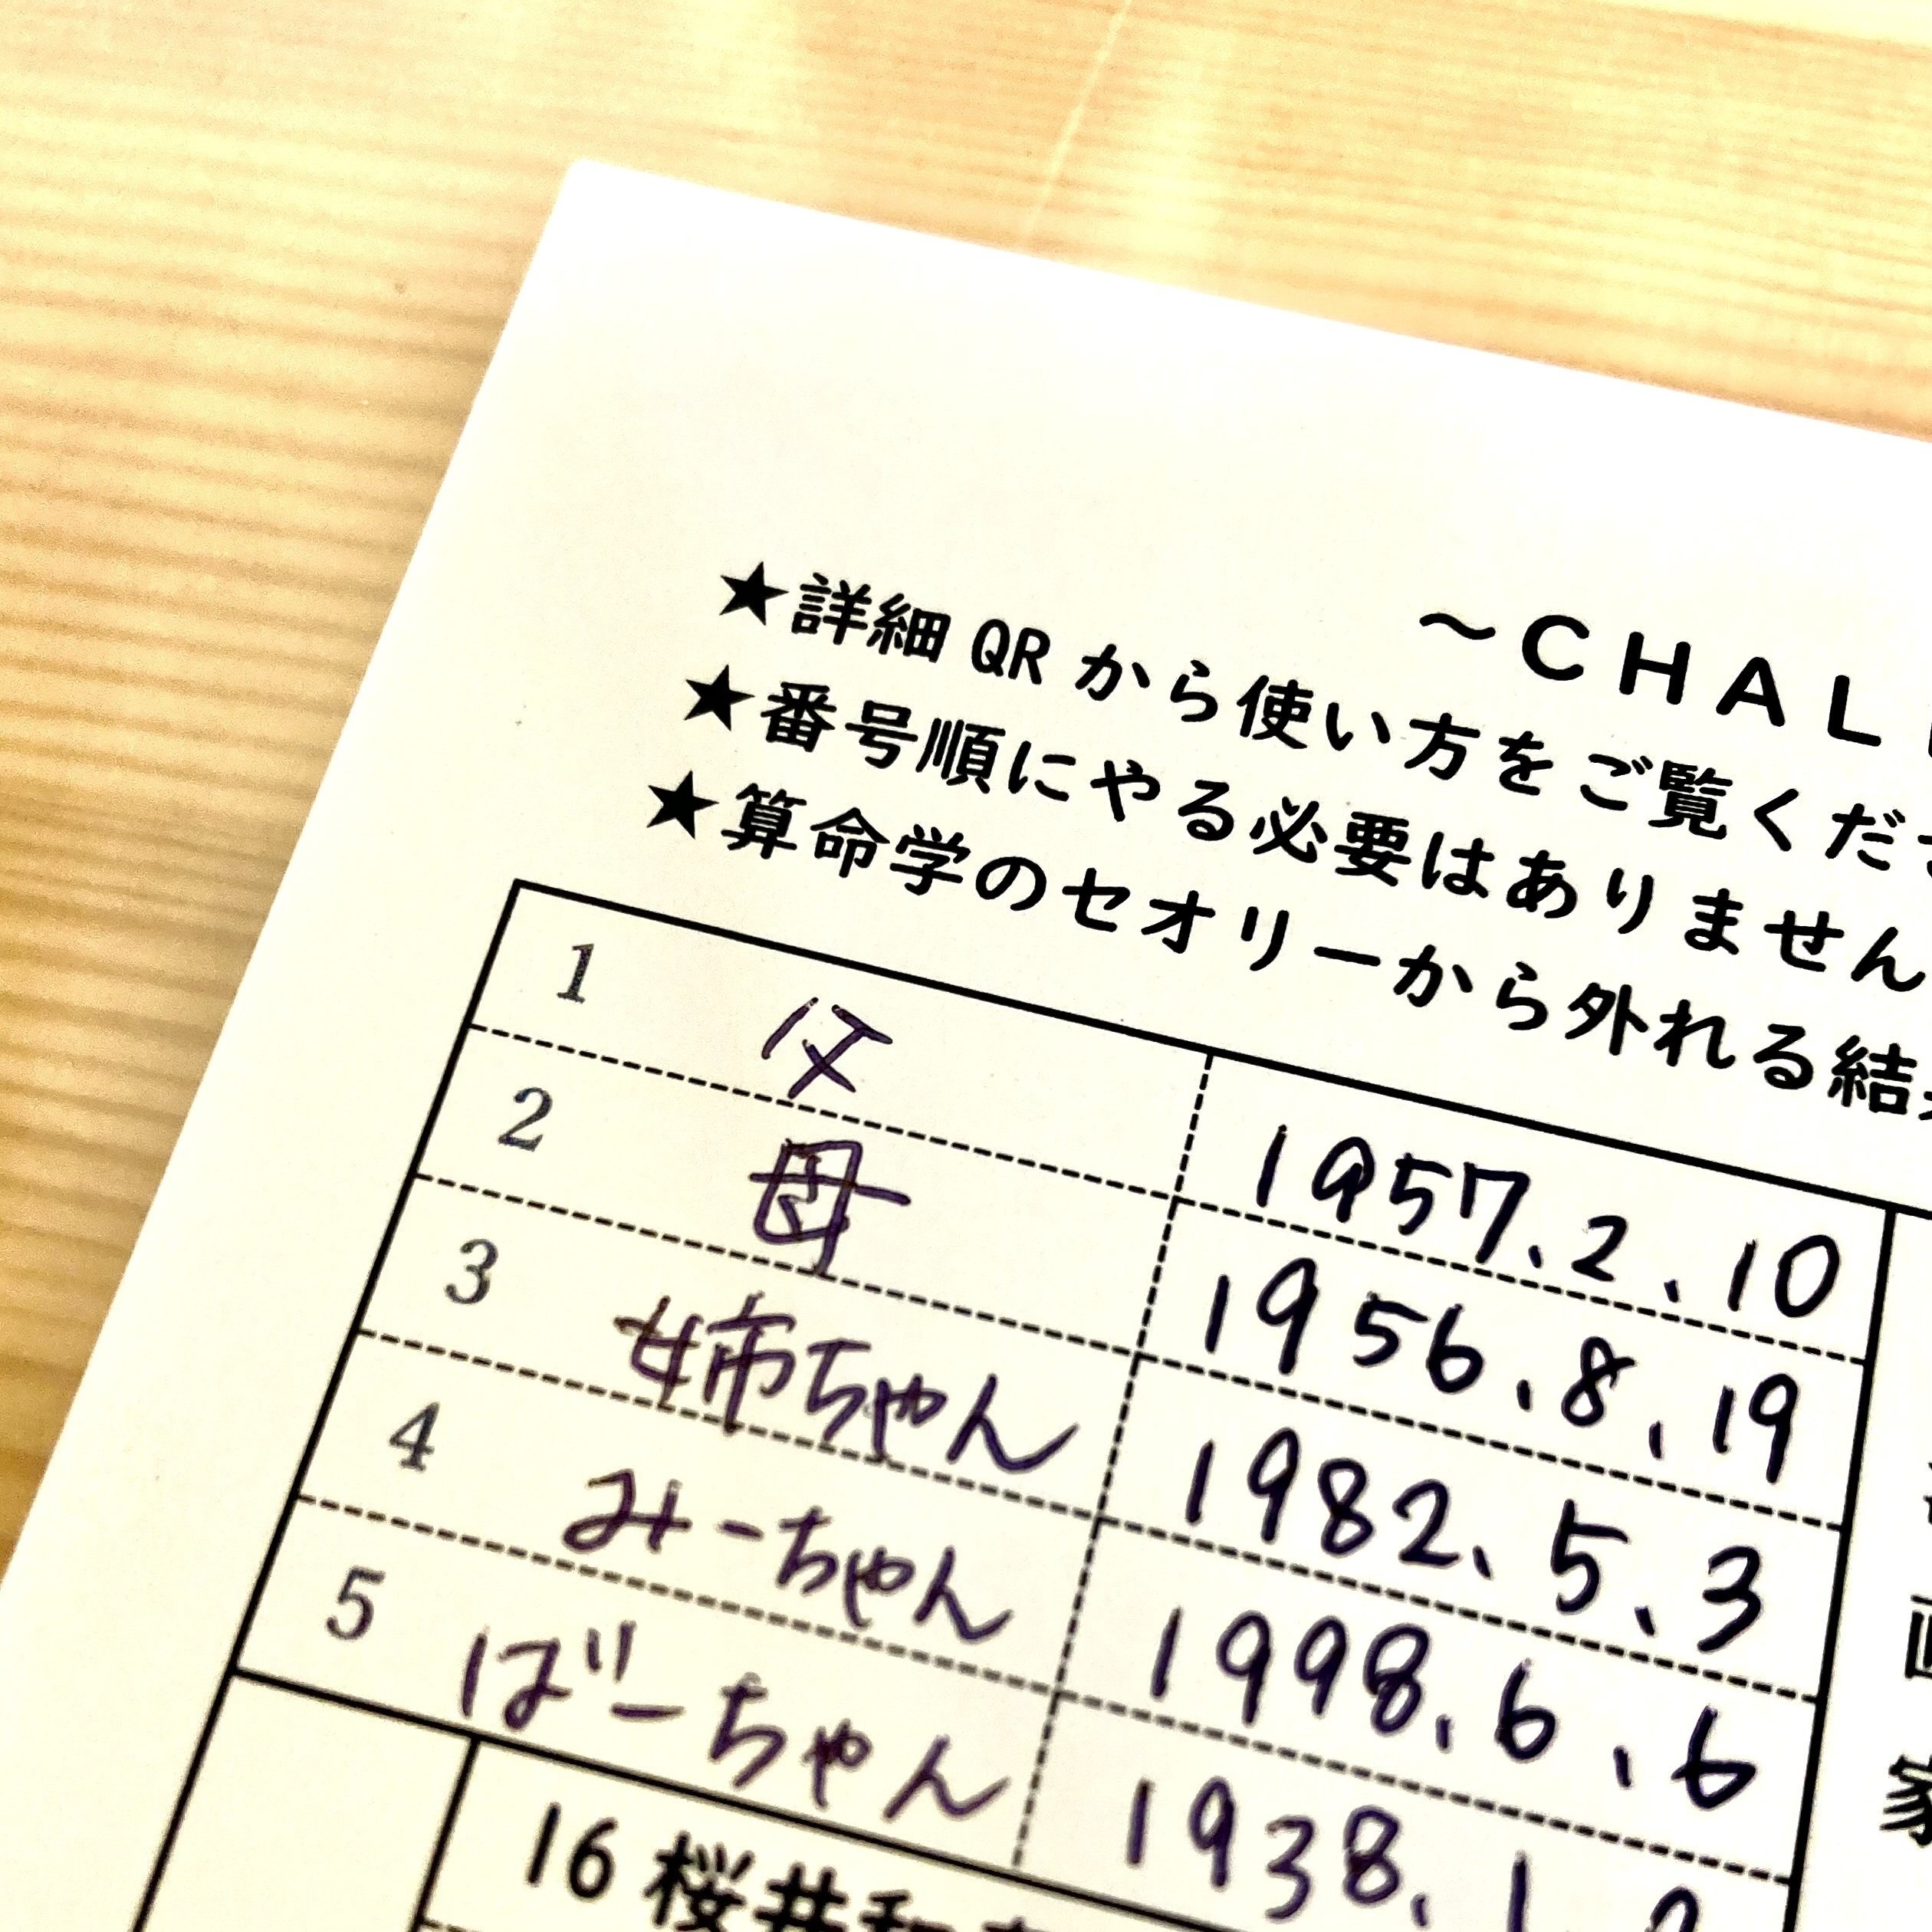 ~CHAL
★詳細QRから使い方をご覧くださ
★番号順にやる必要はありません
★算命学のセオリーから外れる結
1 父 1957.2.10
2 母 1956.8.19
3 姉ちゃん 1982.5.3
4 みーちゃん 1998.6.6
5 ばーちゃん 1938.1.
16 桜井和